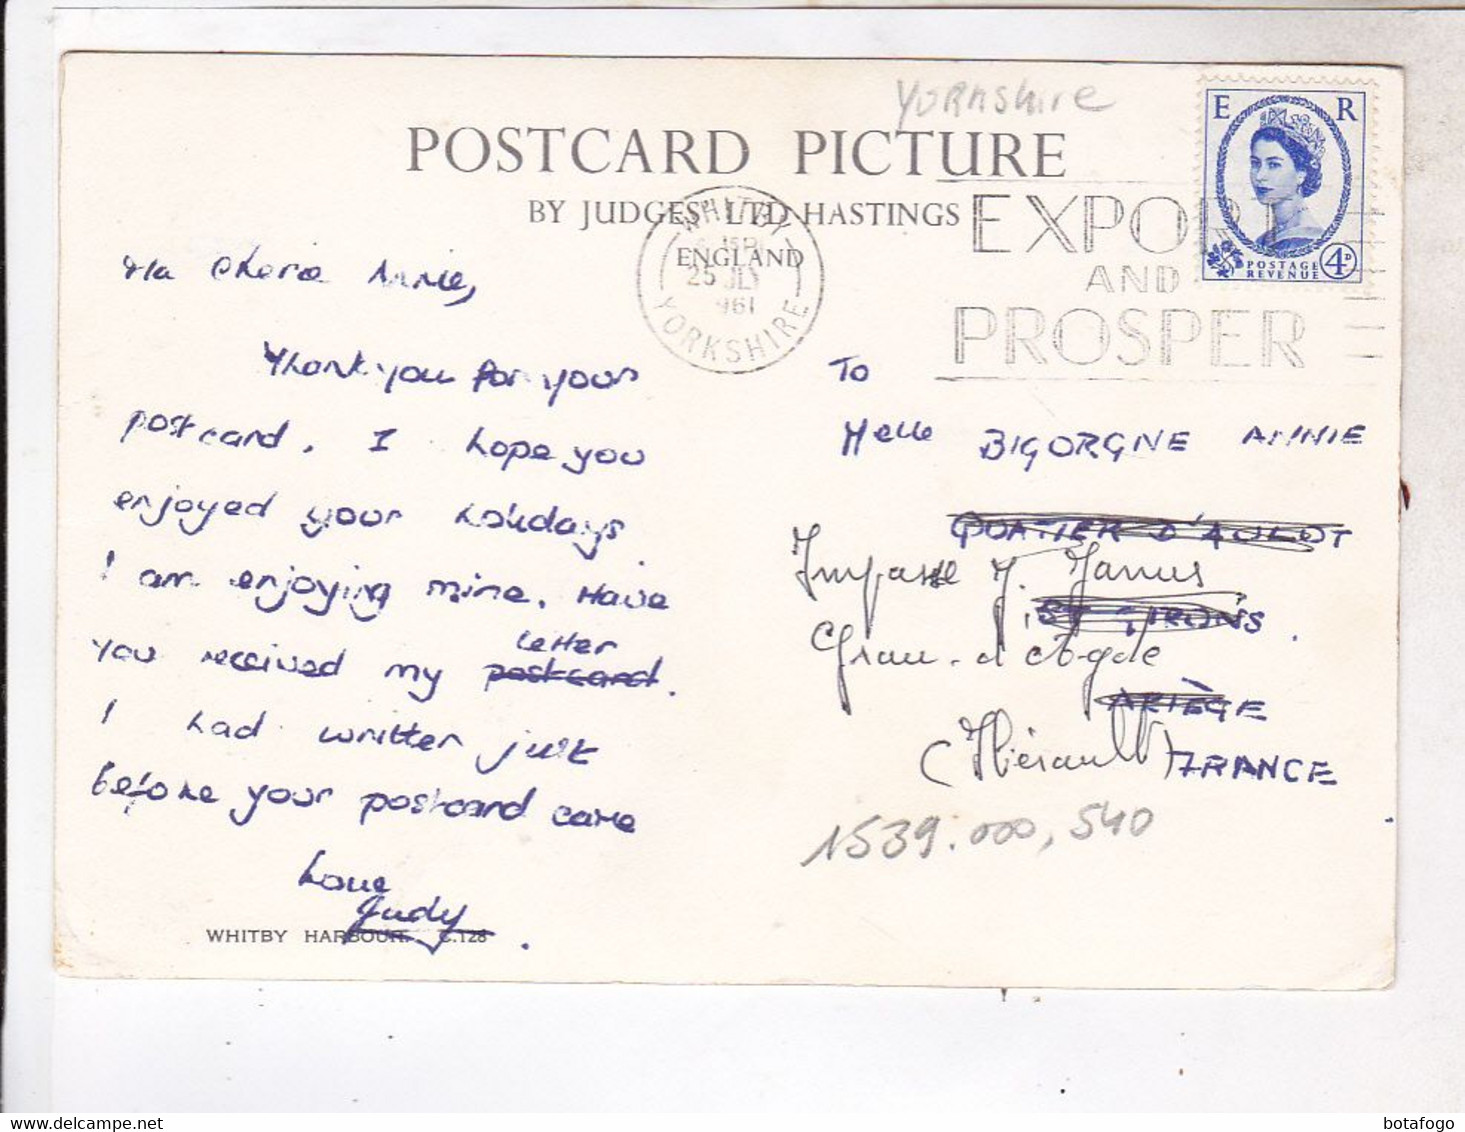 Yorkshire
POSTCARD PICTURE
BY JUDGES' LTD HASTINGS
ENGLAND
WHITBY
25 JLY
1961
YORKSHIRE
EXPORT
AND
PROSPER
E R
POSTAGE
REVENUE
4D
Ma Chere Annie,
Thank you for your
postcard. I hope you
enjoyed your holidays.
I am enjoying mine. Have
you received my postcard letter.
I had written just
before your postcard came
Love
Judy.
WHITBY HARBOUR. C.128
To
Melle BIGORGNE ANNIE
QUATIER D'AULOT
Impasse J.
ST GIRONS.
Grau-d'Agde
ARIÈGE
(Hérault) FRANCE
1539.000,540
botafogo